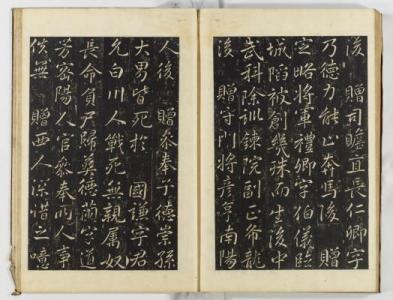 後 贈司贍直長仁卿字
乃德力能止奔馬後 贈
定略將軍禮卿字伯儀臨
城陷被創幾殊而生後中
武科除訓鍊院副正希龍
後 贈守門將彥亨南陽
人後 贈參奉子德崇孫
大男皆死於 國謙字君
允白川人戰死無親属奴
長命負尸歸葬德蘭字道
芳密陽人官參奉兩人事
佚無 贈西人深惜之噫